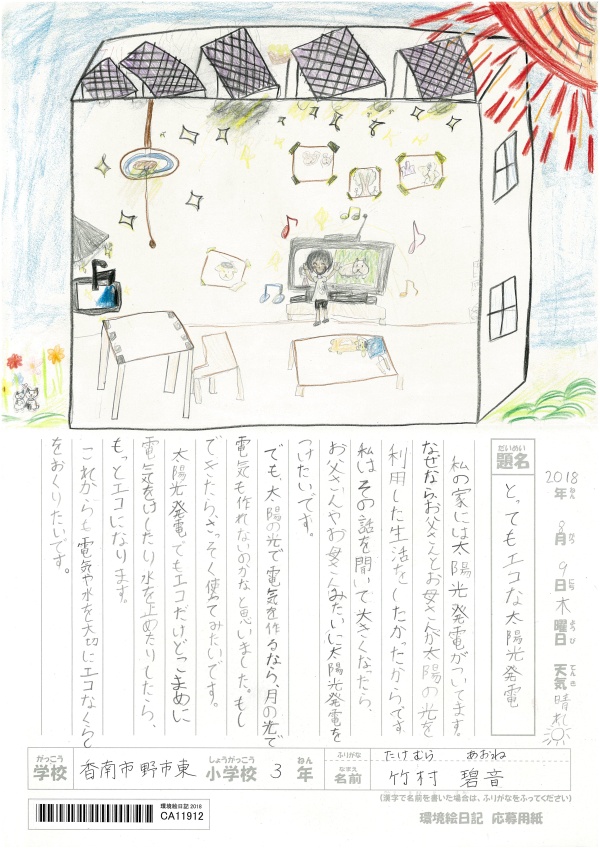 2018年 8月 9日 木曜日 天気 晴れ
ねん がつ にち ようび てんき
だいめい
題名
とってもエコな太陽光発電
私の家には太陽光発電がついてます。
なぜなら、お父さんとお母さんが太陽の光を
利用した生活をしたかったからです。
私はその話を聞いて大きくなったら、
お父さんやお母さんみたいに太陽光発電を
つけたいです。
でも、太陽の光で電気を作るなら、月の光で
電気も作れないのかなと思いました。もし
できたら、さっそく使ってみたいです。
太陽光発電でもエコだけどこまめに
電気をけしたり水を止めたりしたら、
もっとエコになります。
これからも電気や水を大切にエコなくらし
をおくりたいです。
がっこう しょうがっこう ねん
学校 香南市野市東 小学校 3 年
ふりがな たけむら あおね
なまえ
名前 竹村 碧音
(漢字で名前を書いた場合は、ふりがなをふってください)
環境絵日記 2018
CA11912
環境絵日記 応募用紙